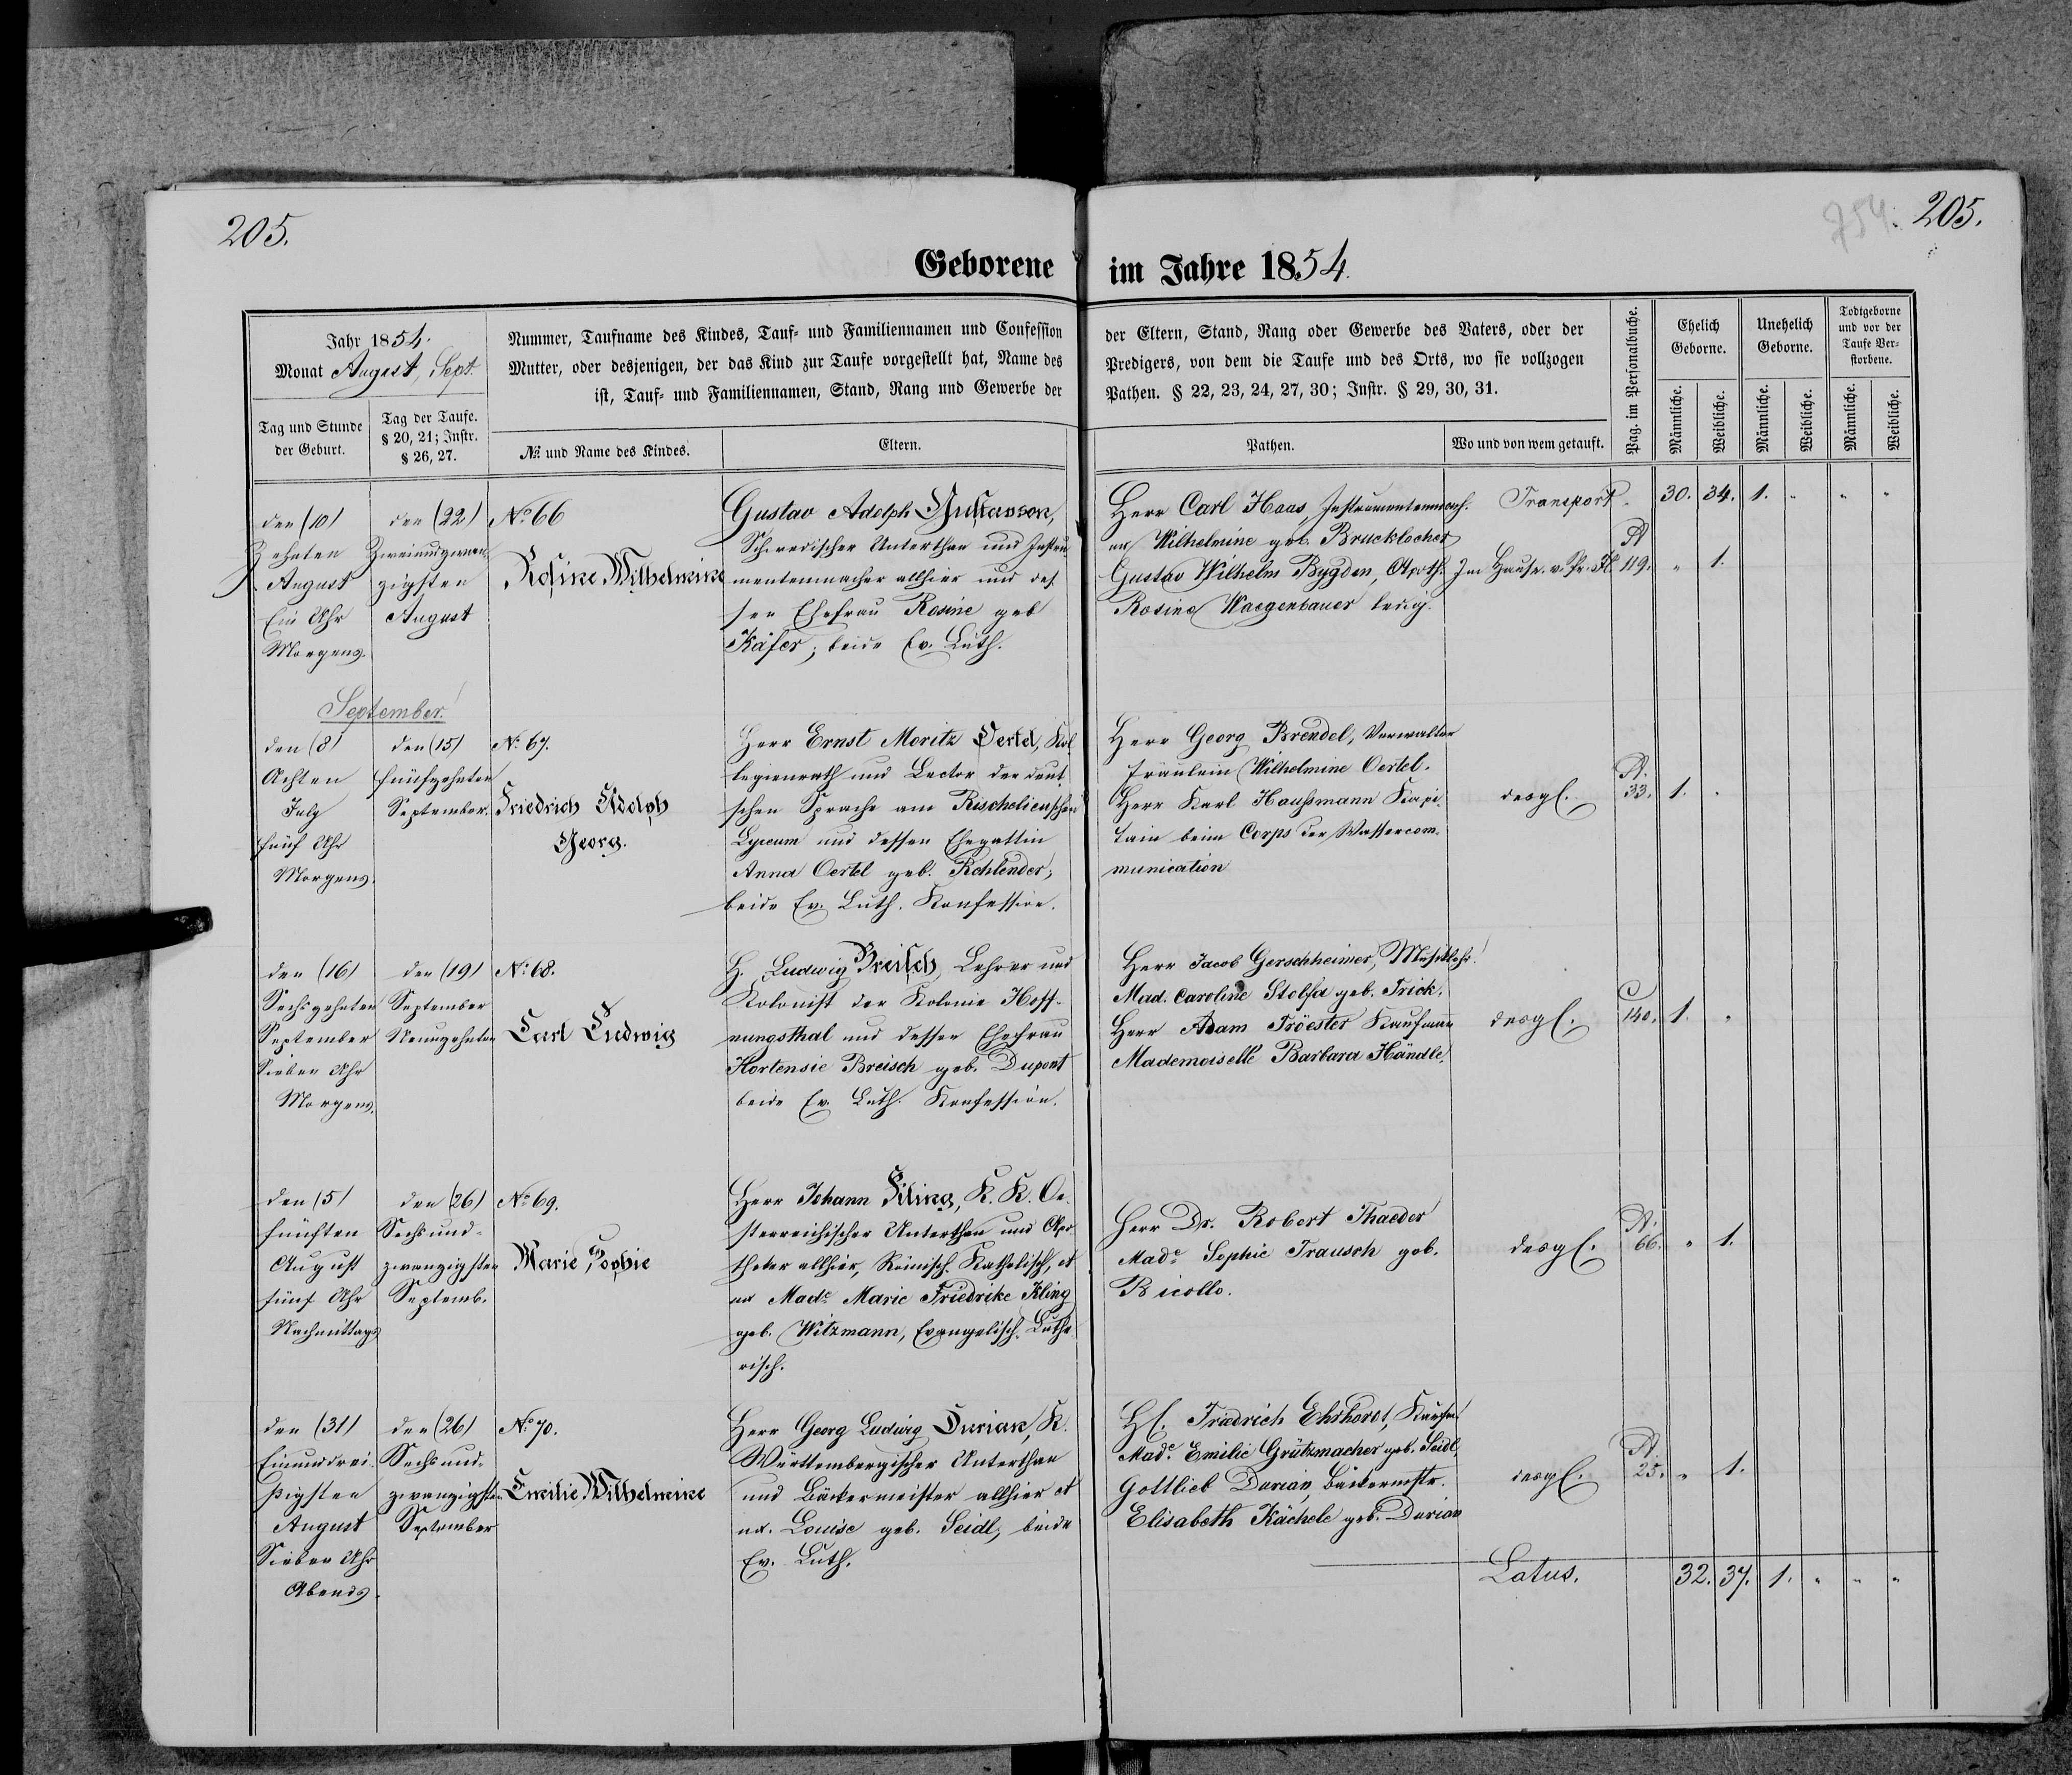 205.
754.
205.
Geborene im Jahre 1854.
Jahr 1854.
Monat August, Sept.
Tag und Stunde der Geburt.
Tag der Taufe. § 20, 21; Instr. § 26, 27.
Nummer, Taufname des Kindes, Tauf- und Familiennamen und Confession der Eltern, Stand, Rang oder Gewerbe des Vaters, oder der
Mutter, oder desjenigen, der das Kind zur Taufe vorgestellt hat, Name des Predigers, von dem die Taufe und des Orts, wo sie vollzogen
ist, Tauf- und Familiennamen, Stand, Rang und Gewerbe der Pathen. § 22, 23, 24, 27, 30; Instr. § 29, 30, 31.
№ und Name des Kindes.
Eltern.
Pathen.
Wo und von wem getauft.
Pag. im Personalbuche.
Ehelich Geborne.
Unehelich Geborne.
Todtgeborne und vor der Taufe Verstorbene.
Männliche.
Weibliche.
Männliche.
Weibliche.
Männliche.
Weibliche.
Transport. 30. 34. 1. " " "
den (10)
Zehnten
August
Ein Uhr
Morgens.
den (22)
Zweiundzwan
zigsten
August
No 66
Rosine Wilhelmine
Gustav Adolph Gustavson,
Schwedischer Unterthan und Instru
mentenmacher allhier und des
sen Ehefrau Rosine geb
Käfer; beide Ev. Luth.
Herr Carl Haas, Instrumentenmach.
ux Wilhelmine geb. Brucklocher
Gustav Wilhelm Bygden, Apoth.
Rosine Waegenbauer ledig.
Im Hause v. Pr. Fl.
A
119. " 1.
September!
den (8)
Achten
July
fünf Uhr
Morgens.
den (15)
fünfzehnten
September.
No 67.
Friedrich Adolph
Georg.
Herr Ernst Moritz Oertel, Kol
legienrath und Lector der deut
schen Sprache am Richelieuschen
Lyceum und dessen Ehegattin
Anna Oertel geb. Rohlender;
beide Ev. Luth. Konfession.
Herr Georg Brendel, Verwalter
Fräulein Wilhelmine Oertel.
Herr Karl Haußmann Kapi
tain beim Corps der Wassercom-
munication
desgl.
A.
33. 1. "
den (16)
Sechszehnten
September
Sieben Uhr
Morgens.
den (19)
September
Neunzehnten
No 68.
Carl Ludwig
H. Ludwig Breisch, Lehrer und
Kolonist der Kolonie Hoff-
nungsthal und dessen Ehefrau
Hortensie Breisch geb. Dupont
beide Ev. Luth. Konfession.
Herr Jacob Gerschheimer,
Mad. Caroline Stolfa geb. Frick.
Herr Adam Tröester Kaufmann
Mademoiselle Barbara Händle.
desgl.
C
140. 1. "
den (5)
fünften
August
fünf Uhr
Nachmittags
den (26)
Sechsund-
zwanzigsten
Septemb.
No 69.
Marie Sophie
Herr Johann Kling, K. K. Oe-
sterreichischer Unterthan und Apo
theker allhier, Römisch-Katholisch, et
ux Made Marie Friedrike Kling
geb. Witzmann, Evangelisch-Luthe
risch.
Herr Dr. Robert Thaeder
Made Sophie Trausch geb.
Bicollo.
desgl.
A.
66. " 1.
den (31)
Einunddrei-
ßigsten
August
Sieben Uhr
Abends.
den (26)
Sechsund-
zwanzigsten
September
No 70.
Emilie Wilhelmine
Herr Georg Ludwig Durian, K.
Württembergischer Unterthan
und Bäckermeister allhier et
ux. Louise geb. Seidl, beide
Ev. Luth.
H. Friedrich Ehrhorst, Kaufm.
Made Emilie Grützmacher geb. Seidl,
Gottlieb Durian, Bäckermstr.
Elisabeth Kächele geb. Durian
desgl.
A.
25. " 1.
Latus. 32. 37. 1. " " "